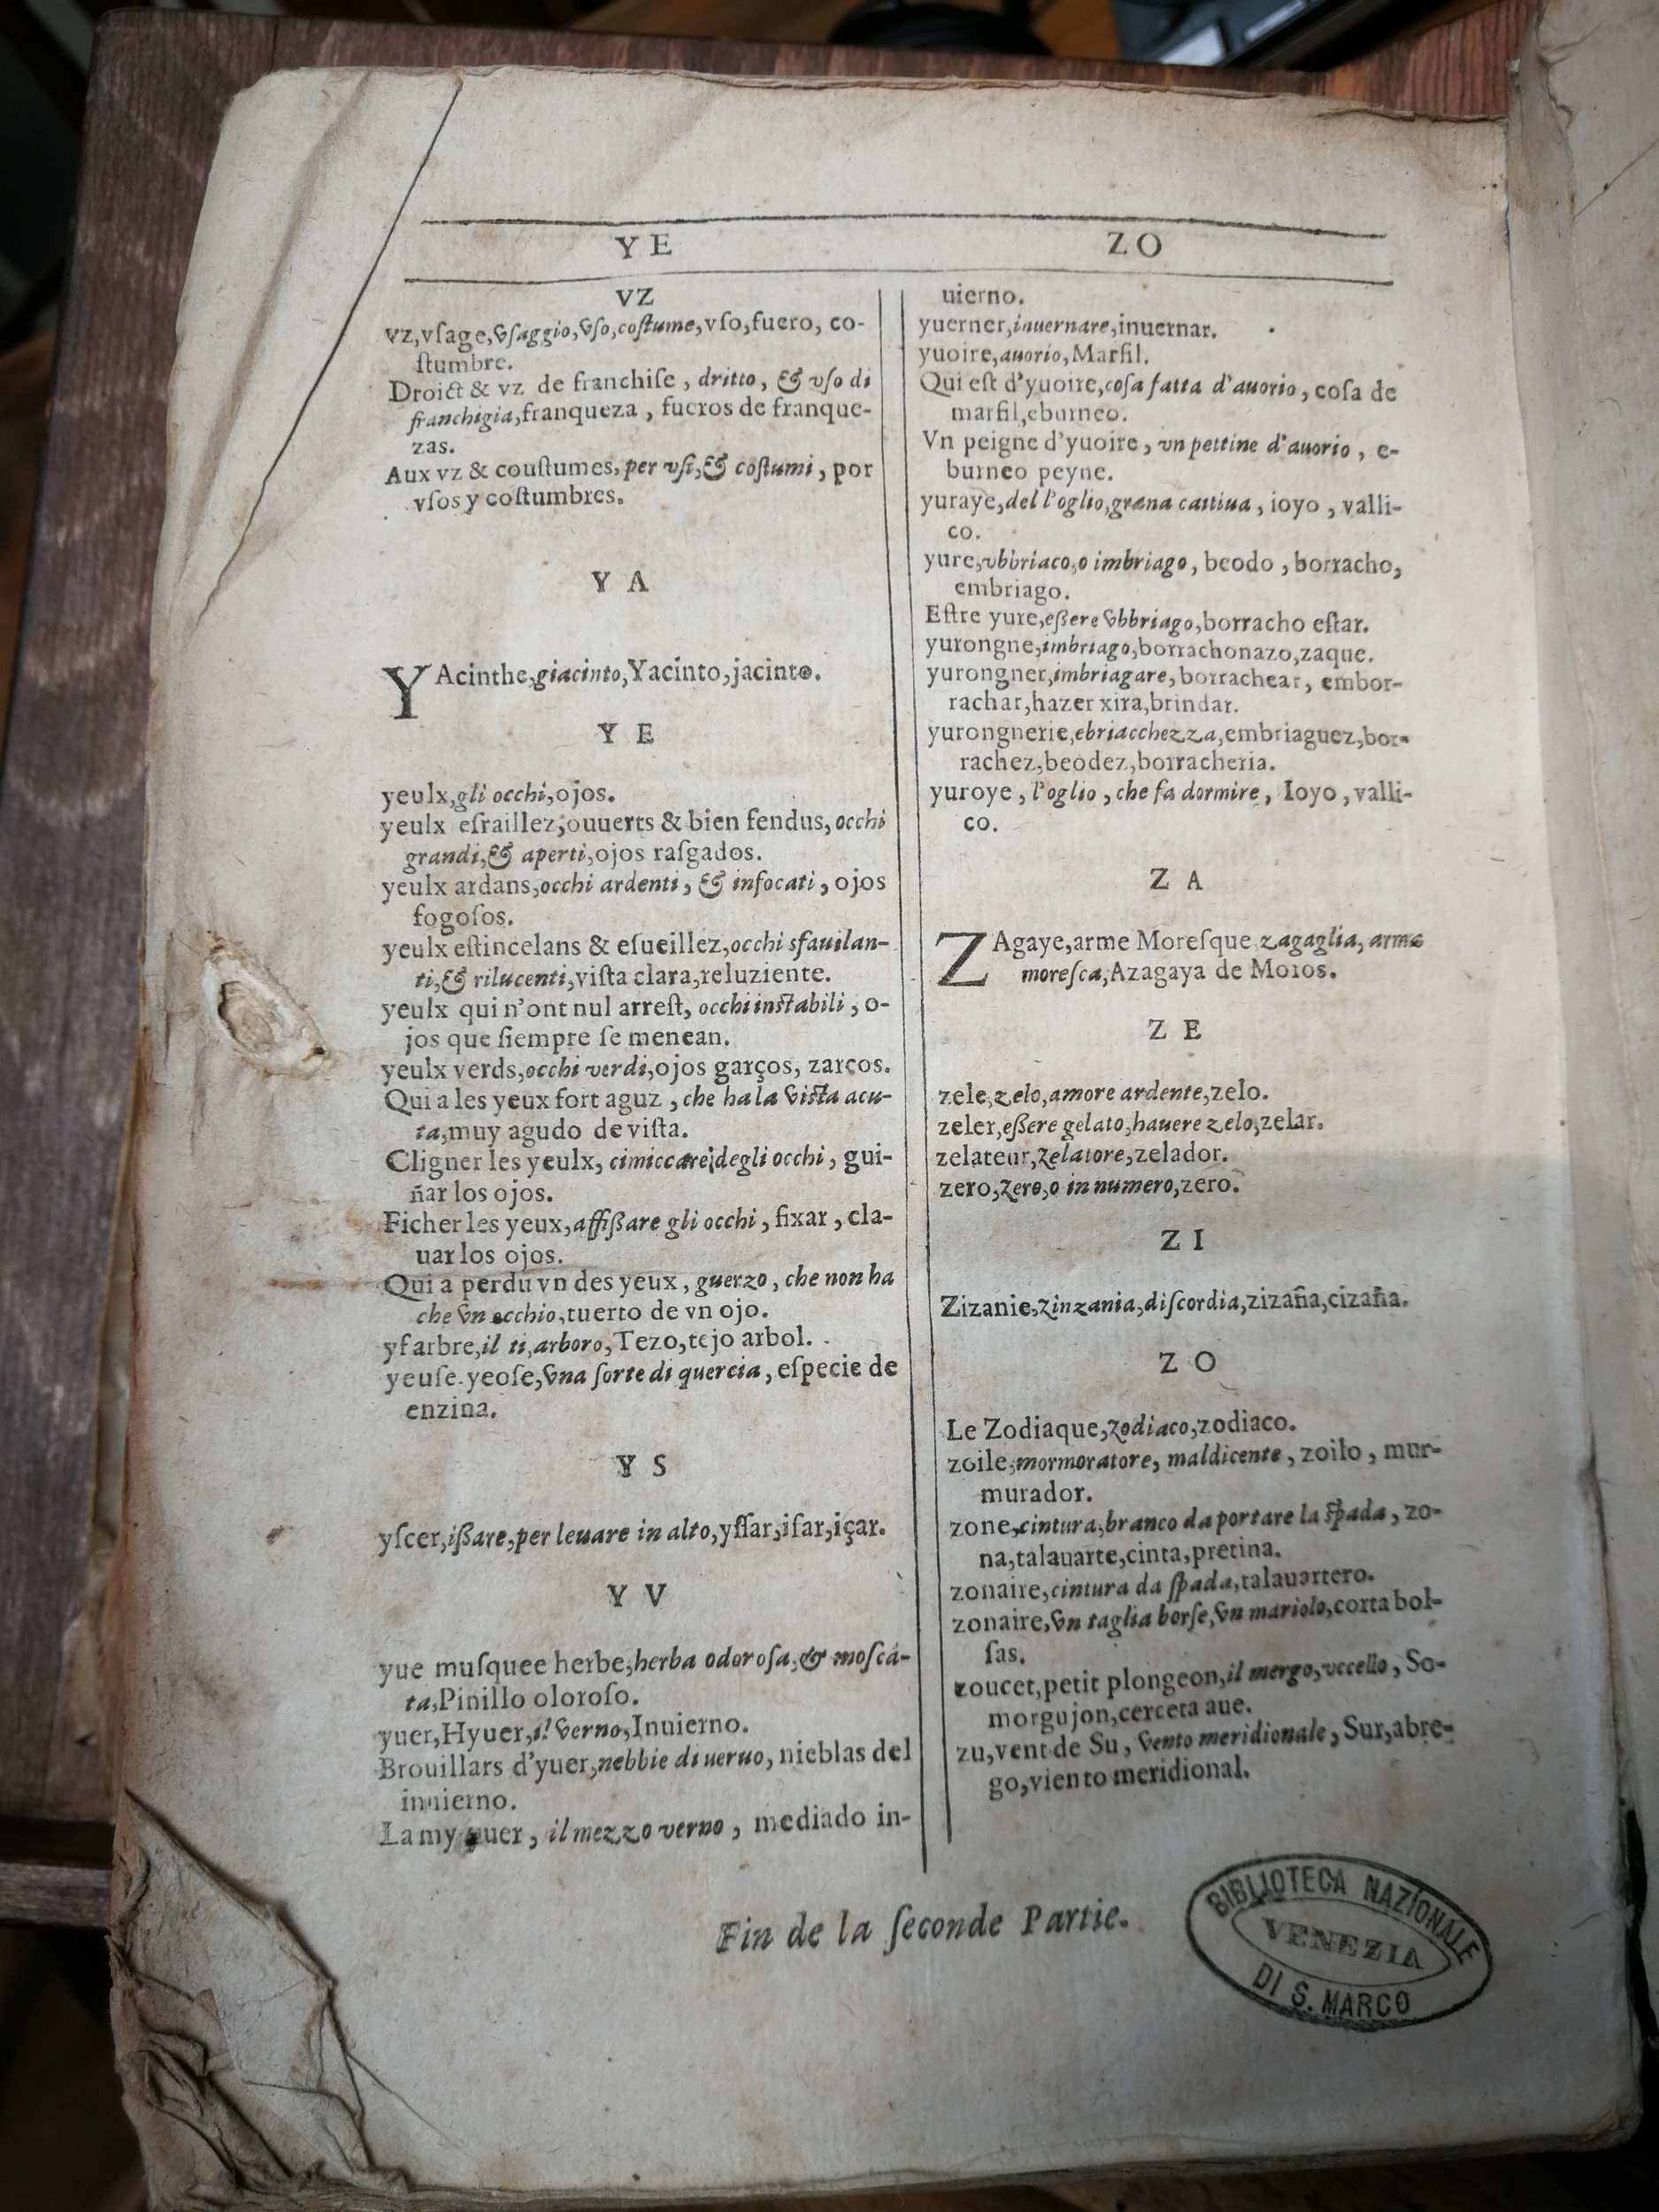 YE
ZO
VZ
vz,vſage,vſaggio,vſo,coſtume,vſo,fuero, co-
ſtumbre.
Droict & vz de franchiſe, dritto, & vſo di
franchigia,franqueza, fueros de franque-
zas.
Aux vz & couſtumes, per vſi,& coſtumi, por
vſos y coſtumbres.
Y A
YAcinthe,giacinto,Yacinto,jacinto.
Y E
yeulx,gli occhi,ojos.
yeulx eſraillez,ouuerts & bien fendus, occhi
grandi,& aperti,ojos raſgados.
yeulx ardans,occhi ardenti, & infocati, ojos
fogoſos.
yeulx eſtincelans & eſueillez,occhi sfauilan-
ti,& rilucenti,viſta clara,reluziente.
yeulx qui n'ont nul arreſt, occhi instabili, o-
jos que ſiempre ſe menean.
yeulx verds,occhi verdi,ojos garços, zarcos.
Qui a les yeux fort aguz, che ha la vista acu-
ta,muy agudo de viſta.
Cligner les yeulx, cimiccare degli occhi, gui-
ñar los ojos.
Ficher les yeux,affiſſare gli occhi, fixar, cla-
uar los ojos.
Qui a perdu vn des yeux, guerzo, che non ha
che vn occhio,tuerto de vn ojo.
yf arbre,il ti,arboro,Tezo,tejo arbol.
yeuſe.yeoſe,vna ſorte di quercia, eſpecie de
enzina.
Y S
yſcer,ißare,per leuare in alto,yſſar,iſar,içar.
Y V
yue muſquee herbe,herba odoroſa,& moſca-
ta,Pinillo oloroſo.
yuer,Hyuer,il verno,Inuierno.
Brouillars d'yuer,nebbie di ueruo, nieblas del
inuierno.
La my yuer, il mezzo verno, mediado in-
uierno.
yuerner,inuernare,inuernar.
yuoire,auorio,Marfil.
Qui eſt d'yuoire,coſa fatta d'auorio, coſa de
marfil,eburneo.
Vn peigne d'yuoire, vn pettine d'auorio, e-
burneo peyne.
yuraye,del l'oglio,grana cattiua, ioyo, valli-
co.
yure,vbbriaco,o imbriago, beodo, borracho,
embriago.
Eſtre yure,eßere vbbriago,borracho eſtar.
yurongne,imbriago,borrachonazo,zaque.
yurongner,imbriagare, borrachear, embor-
rachar,hazer xira,brindar.
yurongnerie,ebriacchezza,embriaguez,bor-
rachez,beodez,borracheria.
yuroye, l'oglio, che fa dormire, Ioyo, valli-
co.
Z A
ZAgaye,arme Moreſque zagaglia, arma
moreſca,Azagaya de Moros.
Z E
zele,zelo,amore ardente,zelo.
zeler,eßere gelato,hauere zelo,zelar.
zelateur,zelatore,zelador.
zero,zero,o in numero,zero.
Z I
Zizanie,zinzania,diſcordia,zizaña,cizaña.
Z O
Le Zodiaque,zodiaco,zodiaco.
zoile,mormoratore, maldicente, zoilo, mur-
murador.
zone,cintura,branco da portare la ſpada, zo-
na,talauarte,cinta,pretina.
zonaire,cintura da ſpada,talauartero.
zonaire,vn taglia borſe,vn mariolo,corta bol-
ſas.
zoucet,petit plongeon,il mergo,vccello, So-
morgujon,cerceta aue.
zu,vent de Su, vento meridionale, Sur,abre-
go,viento meridional.
Fin de la ſeconde Partie.
BIBLIOTECA NAZIONALE
VENEZIA
DI S. MARCO